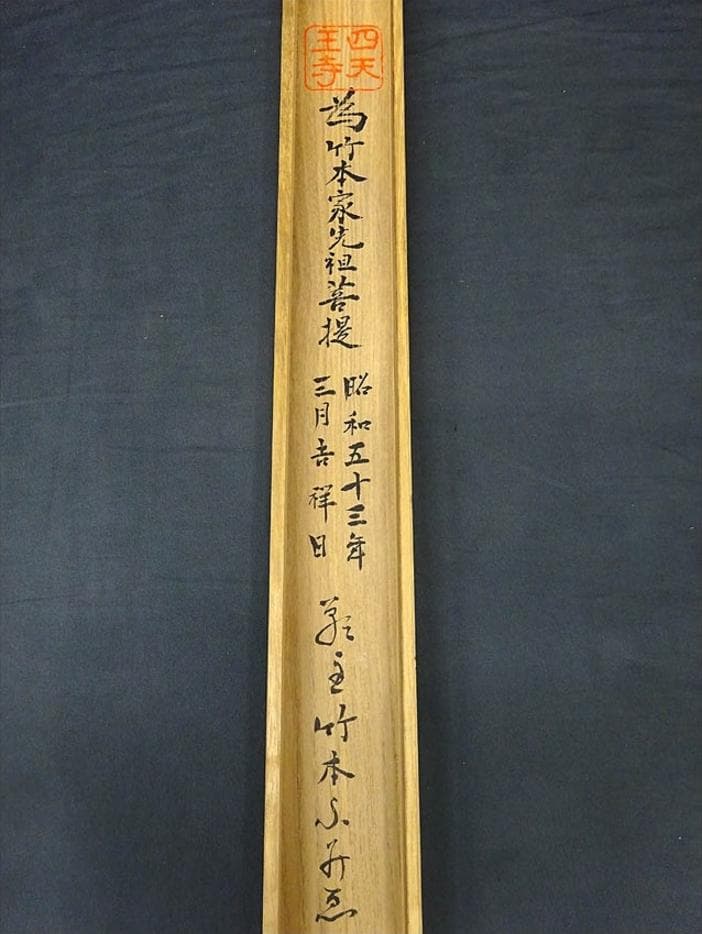 四天王寺
為竹本家先祖菩提
昭和五十三年
三月吉祥日
願主竹本ふ